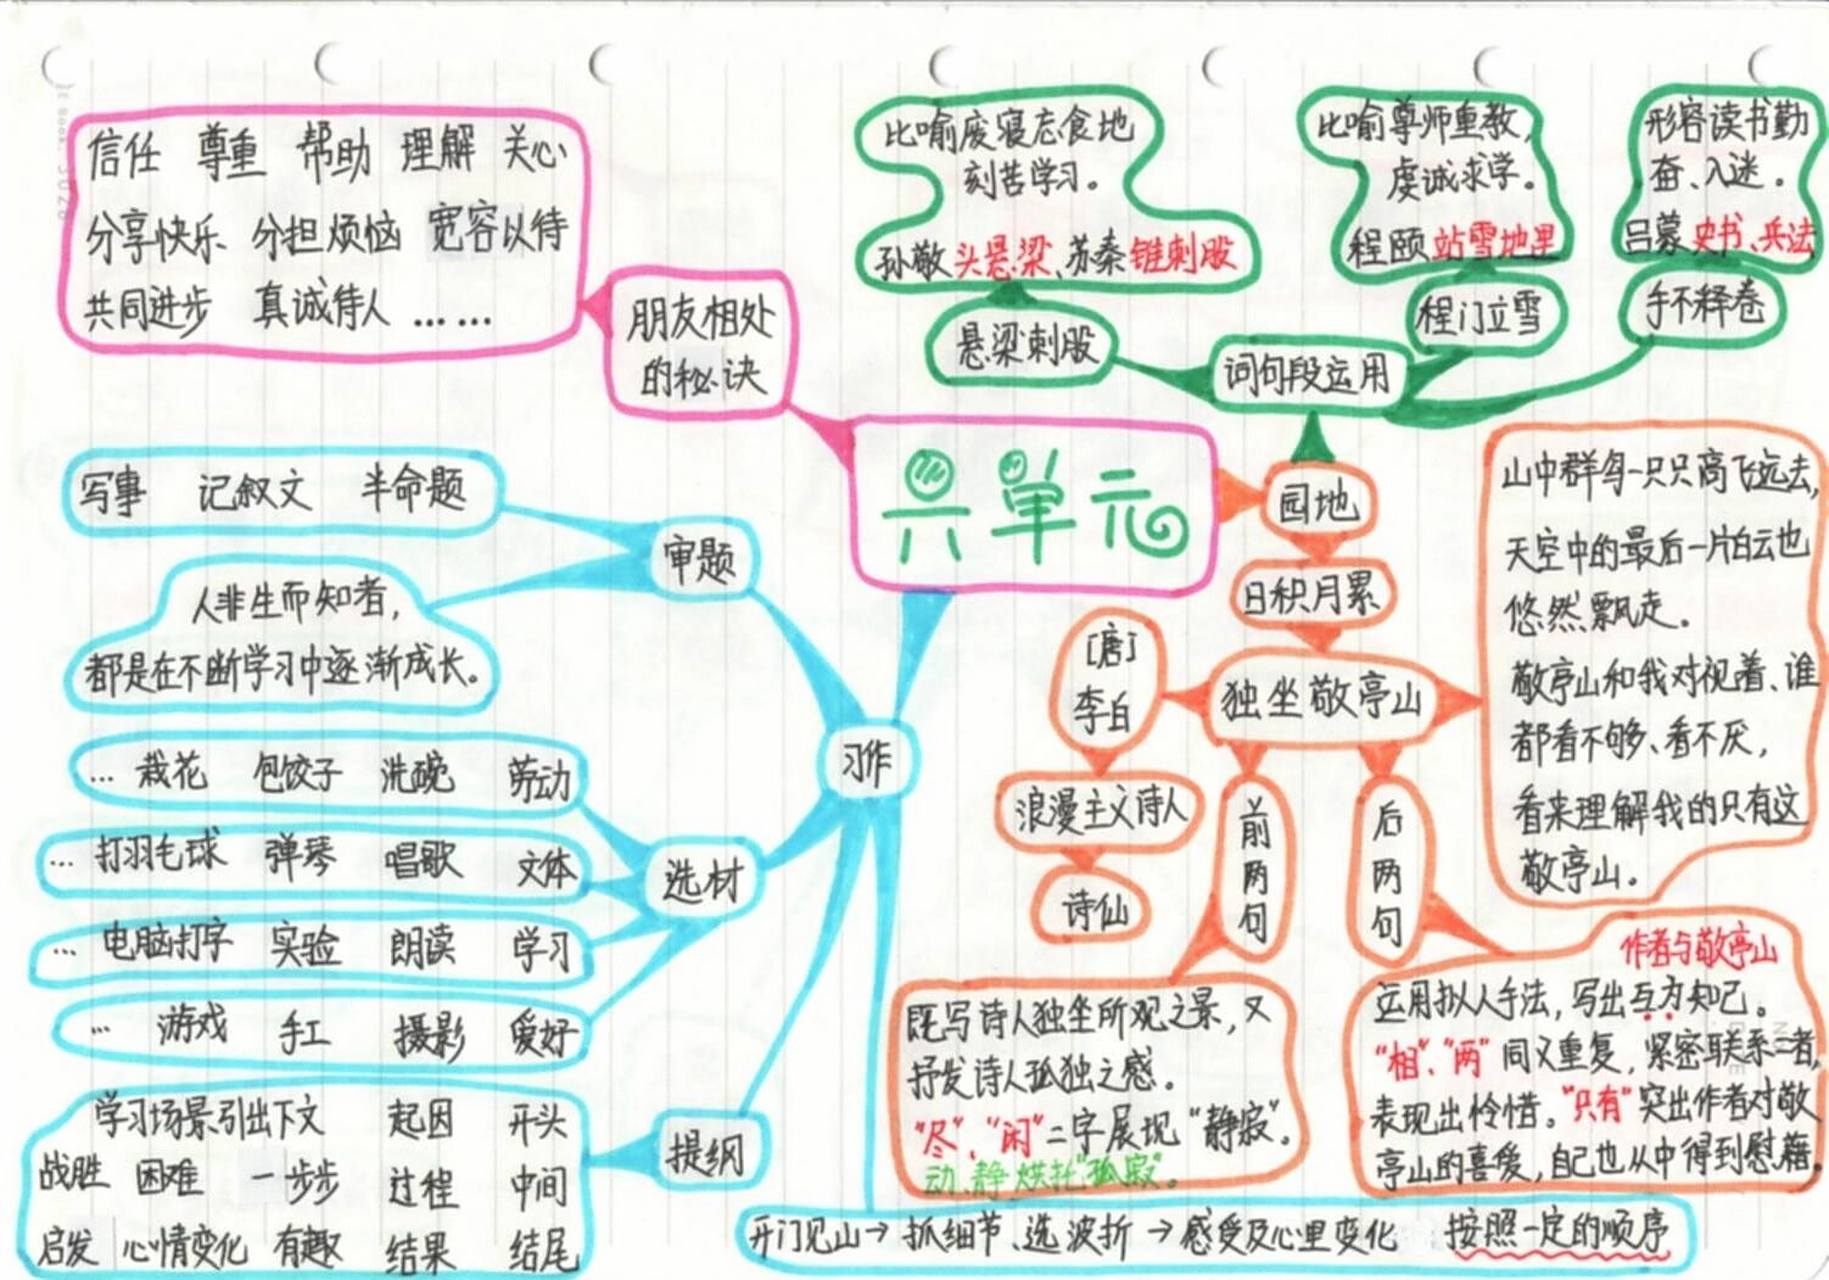 六单元
朋友相处
的秘诀
信任 尊重 帮助 理解 关心
分享快乐 分担烦恼 宽容以待
共同进步 真诚待人 ……
园地
词句段运用
悬梁刺股
比喻废寝忘食地
刻苦学习。
孙敬头悬梁、苏秦锥刺股
程门立雪
比喻尊师重教,
虔诚求学。
程颐站雪地里
手不释卷
形容读书勤
奋、入迷。
吕蒙史书、兵法
日积月累
独坐敬亭山
[唐]
李白
浪漫主义诗人
诗仙
前两句
既写诗人独坐所观之景,又
抒发诗人孤独之感。
"尽"、"闲"二字展现"静寂"。
动、静烘托"孤寂"。
后两句
作者与敬亭山
运用拟人手法,写出互为知己。
"相"、"两"同义重复,紧密联系二者,
表现出怜惜。"只有"突出作者对敬
亭山的喜爱,自己也从中得到慰藉。
山中群鸟一只只高飞远去,
天空中的最后一片白云也
悠然飘走。
敬亭山和我对视着、谁
都看不够、看不厌,
看来理解我的只有这
敬亭山。
习作
审题
写事 记叙文 半命题
人非生而知者,
都是在不断学习中逐渐成长。
选材
… 栽花 包饺子 洗碗 劳动
… 打羽毛球 弹琴 唱歌 文体
… 电脑打字 实验 朗读 学习
… 游戏 手工 摄影 爱好
提纲
学习场景引出下文 起因 开头
战胜 困难 一步步 过程 中间
启发 心情变化 有趣 结果 结尾
开门见山→抓细节、选波折→感受及心里变化 按照一定的顺序